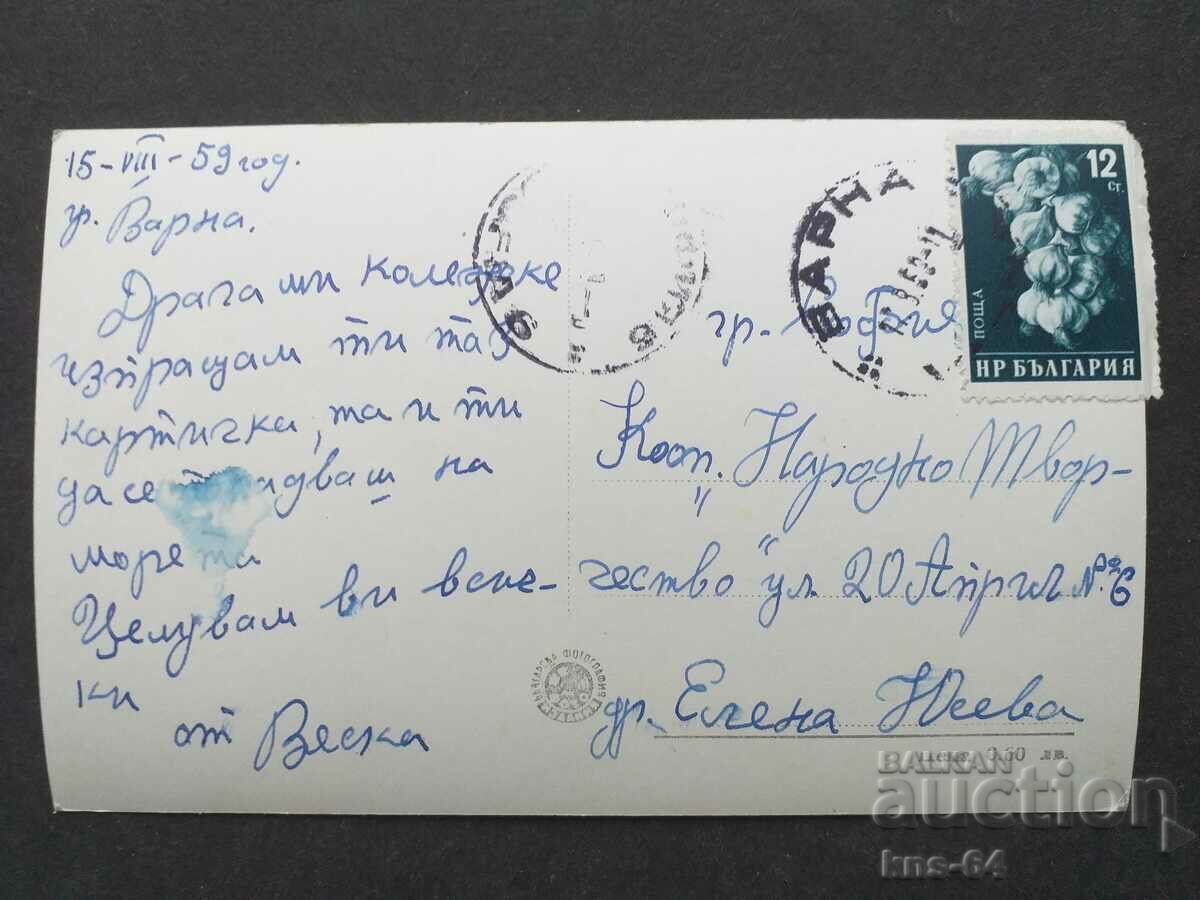 15-VIII-59 год.
гр. Варна.
Драга ми колежке
изпращам ти таз
картичка, та и ти
да се порадваш на
морето
Целувам ви всич-
ки
от Веска
ВАРНА
12
Ст.
ПОЩА
НР БЪЛГАРИЯ
гр. София
Кооп. "Народно Твор-
чество" ул. 20 Април №6
др. Елена
БЪЛГАРСКА ФОТОГРАФИЯ
Цена 0.60 лв.
BALKAN
auction
kns-64